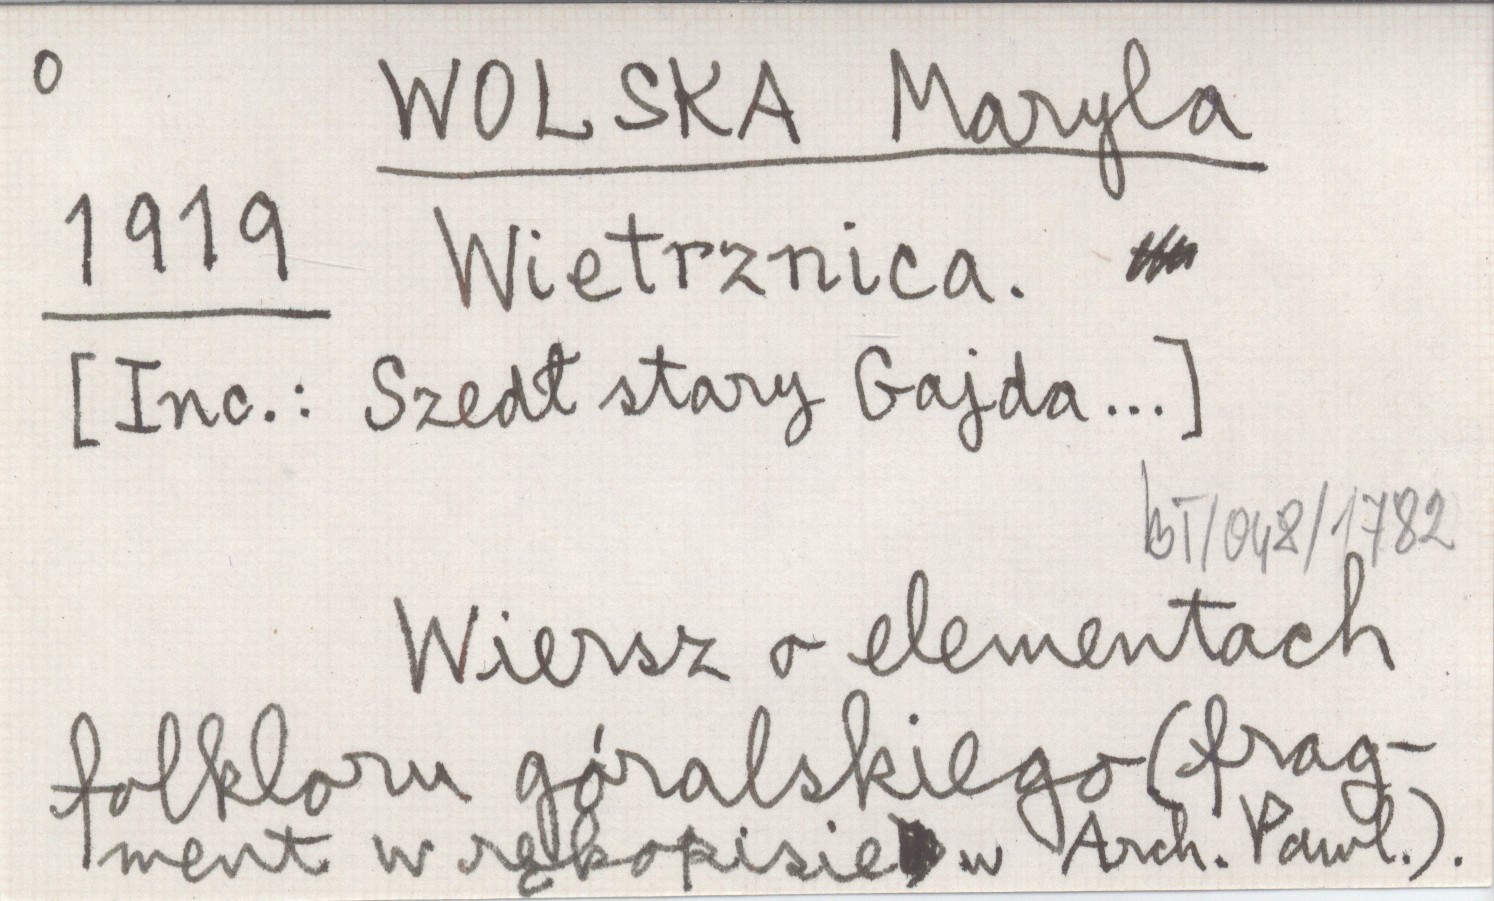 o
WOLSKA Maryla
1919
Wietrznica.
[Inc.: Szedł stary Gajda...]
BT/048/1782
Wiersz o elementach
folkloru góralskiego (frag-
ment w rękopisie w Arch. Pawl.).